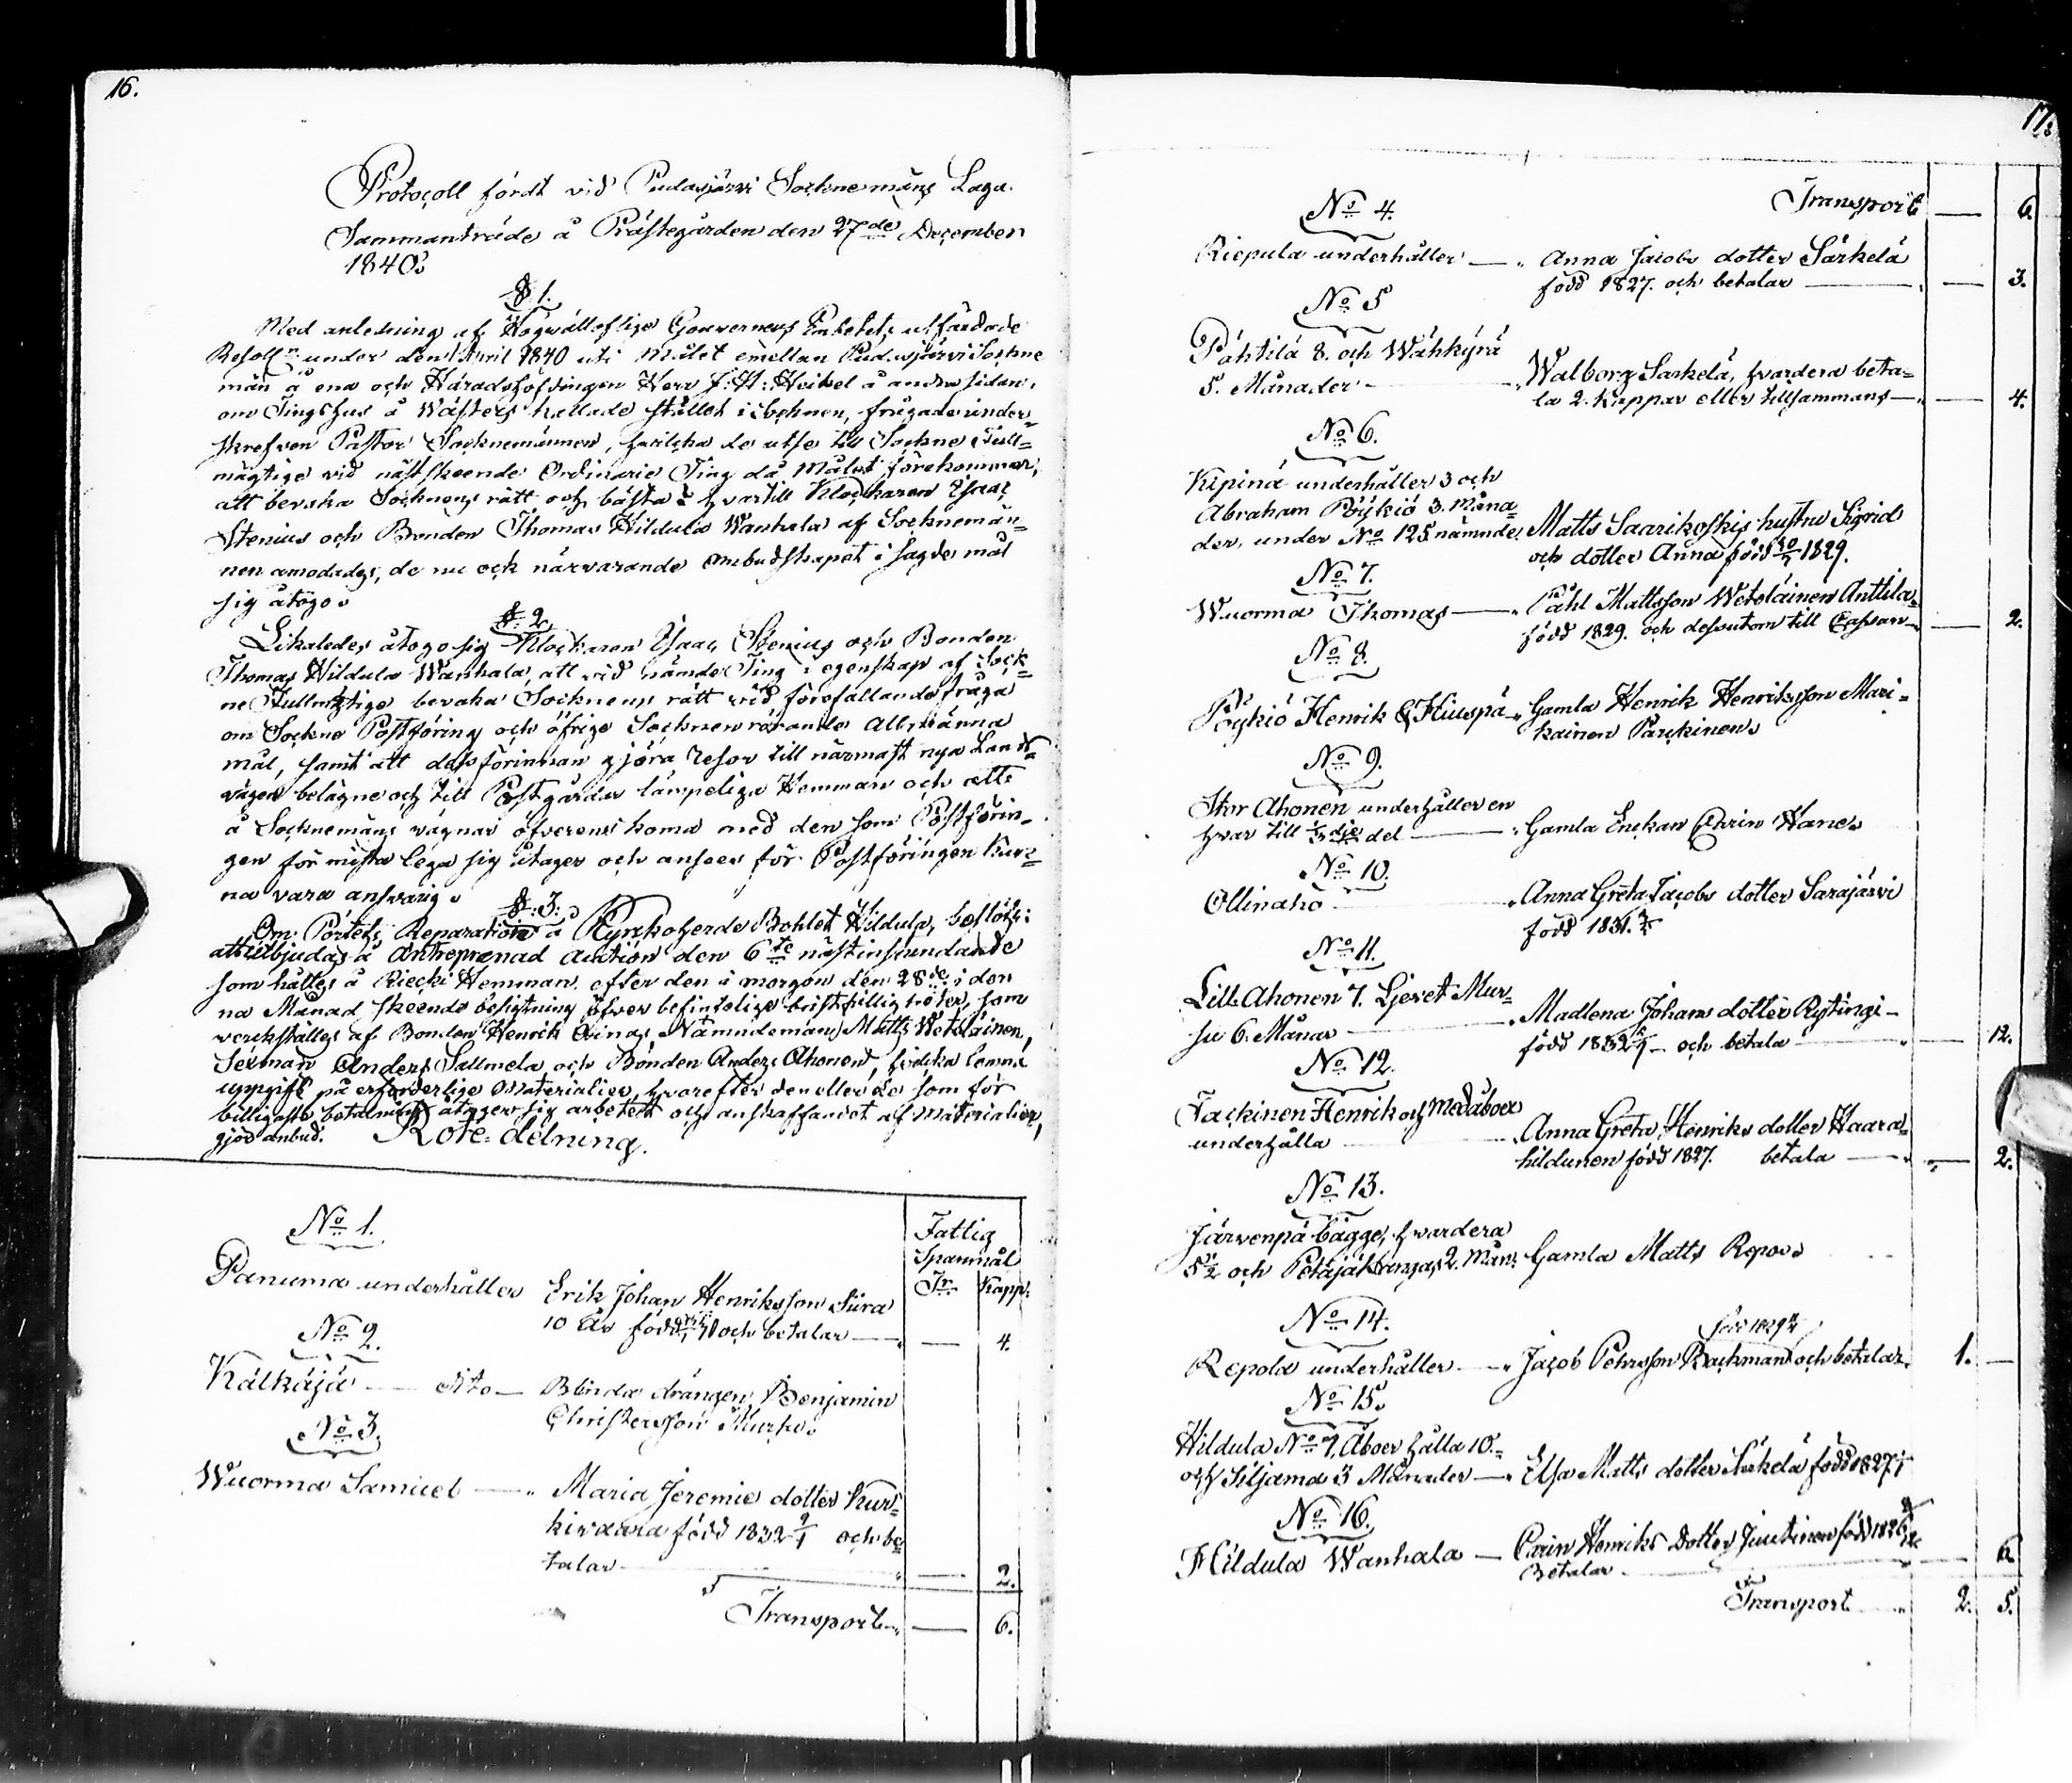 16.
Protocoll fördt vid Pudasjärvi Socknemäns Laga
Sammanträde å Prästegården den 27de December
1840.
§ 1.
Med anledning af Högvälloflige Gouverneurs Embetets utfärdade
Resoll:n under den 1 April 1840 uti målet emellan Pudasjärvi Sockne
män å ena och Häradshöfdingen Herr J: H: Heikel å andra sidan,
om Tingshus å Wästers kallade stället i Socknen, frågade under-
skrefven Pastor Socknemännen, hvilcka de utse till Sockne Full-
mägtige vid nästskeende Ordinarie Ting då målet förekommer,
att bevaka Socknens rätt och bästa; hvartill Klockaren Esaac
Stenius och Bonden Thomas Hildula Wanhala af Socknemän-
nen anmodades, de nu ock närvarande ombudskapet i sagde mål
sig åtogo.
§: 2.
Likaledes åtogo sig Klockaren Esaac Stenius och Bonden
Thomas Hildula Wanhala, att vid nämde Ting i egenskap af Sock-
ne Fullmägtige bevaka Socknens rätt vid förefallande fråga
om Sockne Postföring och öfrige Socknen rörande Allmänna
mål, samt att dessförinnan gjöra resor till närmast nya Lands
vägen belägne och till Postgårdar lämpelige Hemman och att
å Socknemäns vägnar öfverenskoma med den som Postförin-
gen för minsta lega sig åtager och anses för Postföringen kun-
na vara ansvarig.
§: 3.
Om Pörtets Reparation å Kyrkoherde Bohlet Hildula, beslöts:
att utbjudas å Entreprenad auction den 6te nästinstundande
som hålles å Riecki Hemman, efter den i morgon den 28de i den
na Månad skeende besigtning öfver befintelige bristfälligheter, som
verkställes af Bonden Henrik Hinas, Nämndeman Matts Wetoläinen,
Sexman Anders Sallmela, och Bonden Anders Ahonen, hvilka lemna
uppgift på erforderlige Materialier, hvarefter den eller de som för
billigaste betalning åtager sig arbetet och anskaffandet af materialier,
gjör anbud.
Rote-delning.
Fattig
Spanmål
Tr. Kapp:
No 1.
Panuma underhåller Erik Johan Henriksson Siira
10 År född och betalar — 4.
No 2.
Kälkäjä — dito — Blinda drängen Benjamin
Christersson Murho.
No 3.
Wuorma Samuel — Maria Jeremie dotter Kurs-
kivaara född 1832 9/1 och be-
talar — 2.
Transport — 6.
17.
Transport — 6.
No 4.
Riepula underhåller — Anna Jacobs dotter Särkelä
född 1827. och betalar — 3.
No 5
Pähtilä 8. och Wähkyrä
5. Månader — Walborg Särkelä, hvardera beta-
la 2. kappar eller tillsammans — 4.
No 6.
Kipinä underhåller 3 och
Abraham Pöykiö 3. Måna-
der, under No 125 nämnde Matts Saarikoskis hustru Sigrid
och dotter Anna född 1829.
No 7.
Wuorma Thomas — Påhl Mattsson Wetoläinen Anttila
född 1829. och dessutom till Cassan — 2.
No 8.
Pöykiö Henrik & Hiuspä — Gamla Henrik Henriksson Mari-
kainen Parckinen.
No 9.
Stor Ahonen underhåller en
hvar till 1/3dje del — Gamla Enckan Carin Hane.
No 10.
Ollinaho — Anna Greta Jacobs dotter Sarajärvi
född 1831.
No 11.
Lill Ahonen 7. Gevet Mur-
su 6. Månar — Madlena Johans dotter Rytingi
född 1832 och betala — 12.
No 12.
Jackinen Henrik och Medåboer
underhålla — Anna Greta Henriks dotter Haara-
hildunen född 1827. betala — 2.
No 13.
Järvenpä bägge, hvardera
5 1/2 och Petäjäkangas 2. Mån: Gamla Matts Repo.
No 14.
född 1829
Repola underhåller — Jacob Pehrsson Backman och betalar 1. —
No 15.
Hildula No 7. Åboer hålla 10.
och Siljama 3 Månader — Elsa Matts dotter Särkelä född 1827
No 16.
Hildula Wanhala — Carin Henriks Dotter Juutinen född 1826
Betalar — 6.
Transport 2. 5.